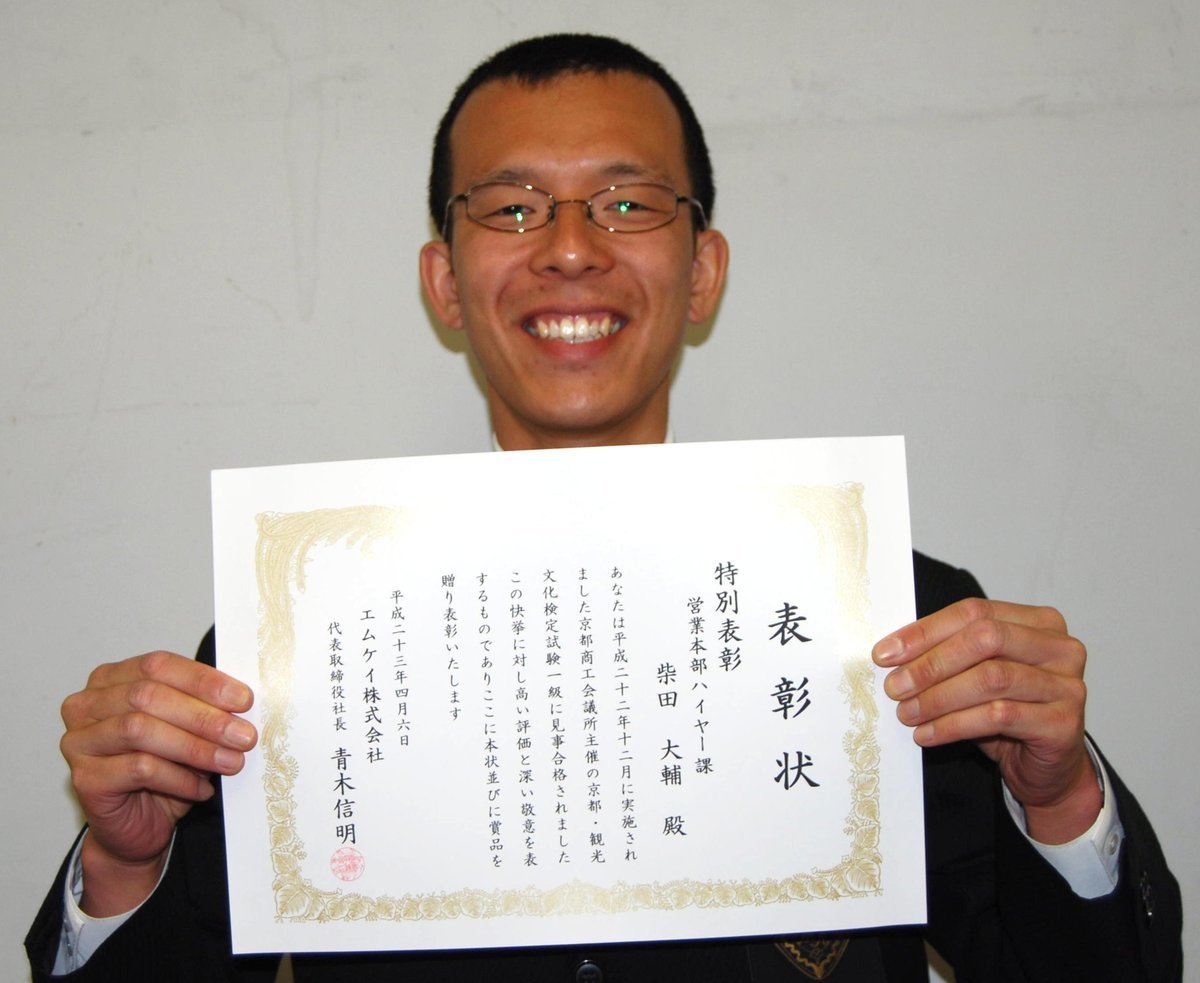 表彰状
特別表彰
営業本部ハイヤー課
柴田 大輔 殿
あなたは平成二十二年十二月に実施され
ました京都商工会議所主催の京都・観光
文化検定試験一級に見事合格されました
この快挙に対し高い評価と深い敬意を表
するものでありここに本状並びに賞品を
贈り表彰いたします
平成二十三年四月六日
エムケイ株式会社
代表取締役社長 青木信明